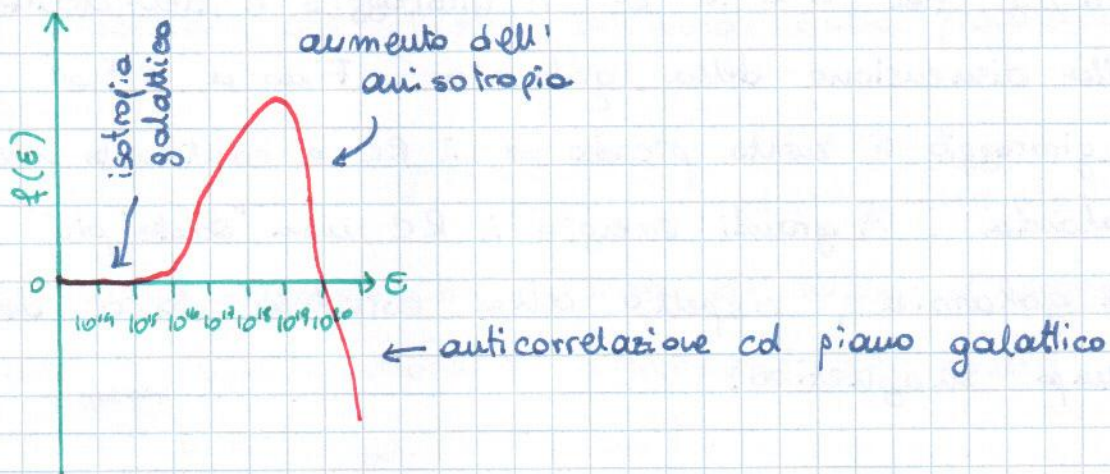 isotropia
galattica
aumento dell'
anisotropia
f(E)
0
E
10¹⁴ 10¹⁵ 10¹⁶ 10¹⁷ 10¹⁸ 10¹⁹ 10²⁰
← anticorrelazione col piano galattico